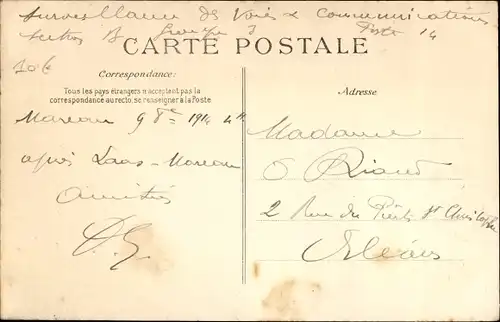 Surveillance des Voies & Communications
Section B Groupe 3 Poste 14
CARTE POSTALE
Correspondance:
Tous les pays étrangers n'acceptent pas la
correspondance au recto, se renseigner à la Poste
Adresse
Mareau 9 8re 1914
après Laas-Mareau
Amitiés
Madame
O Riand
2 Rue du Puits St Christophe
Orléans